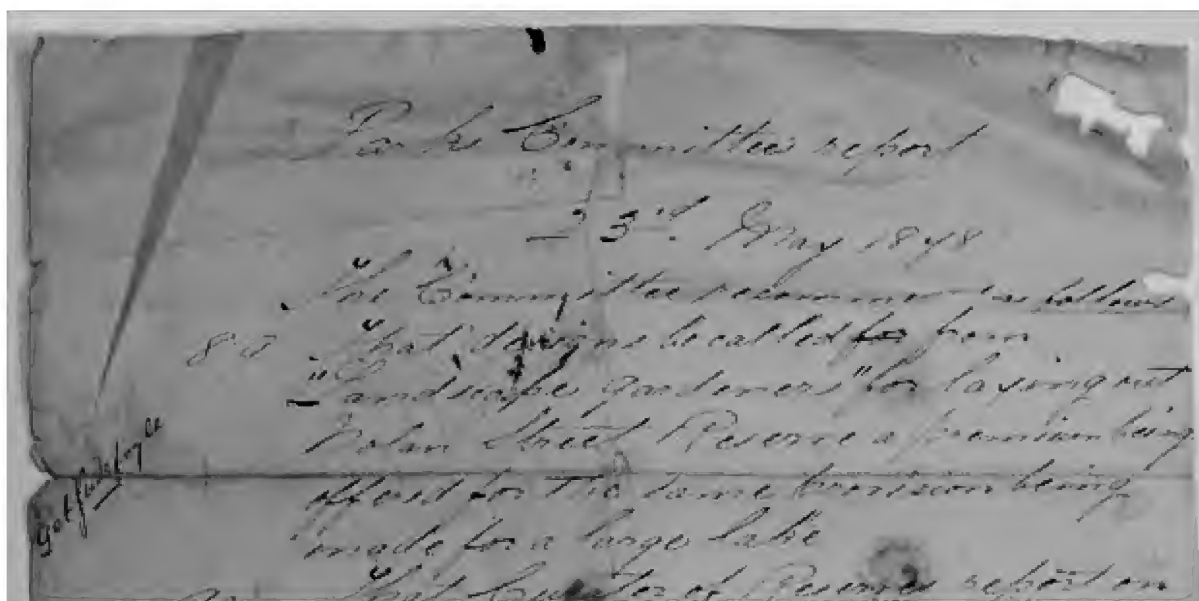 Parks Committee report
23rd. May 1878
The Committee recommend as follows
80 That designs be called for from
"Landscape gardeners" for laying out
Nolan Street Reserve a premium being
offered for the same provision being
made for a large lake
That Curator of Reserves report on